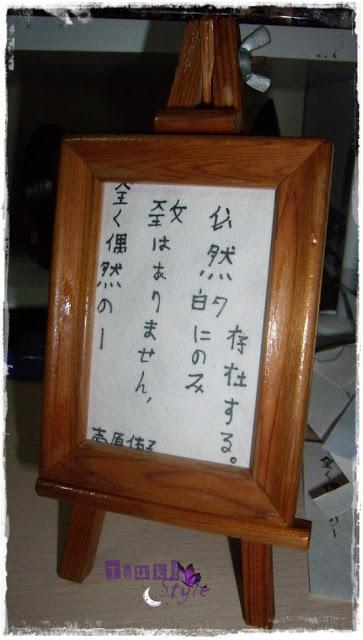 全く偶然の一
致はありません,
必然的にのみ
存在する。
壱原侑子
Tsuki
Style